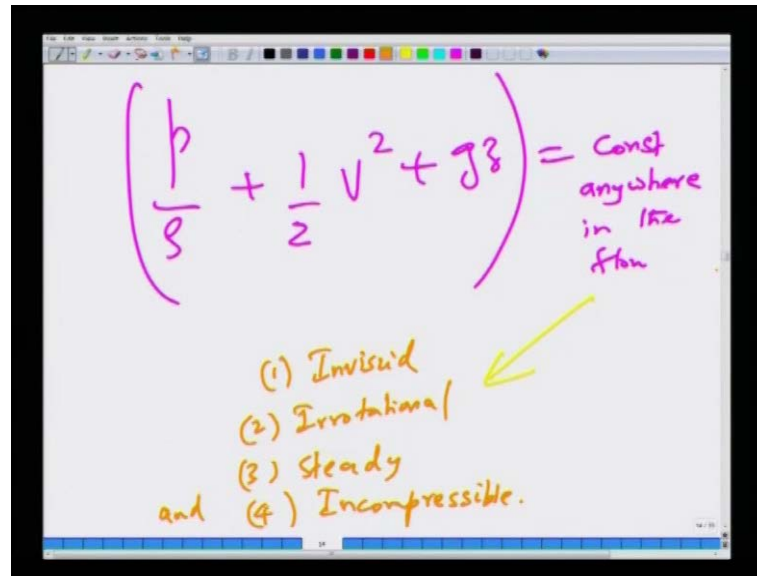 File Edit View Insert Actions Tools Help
(p/ρ + 1/2 v² + gz) = Const
anywhere
in the
flow
(1) Inviscid
(2) Irrotational
(3) Steady
and (4) Incompressible.